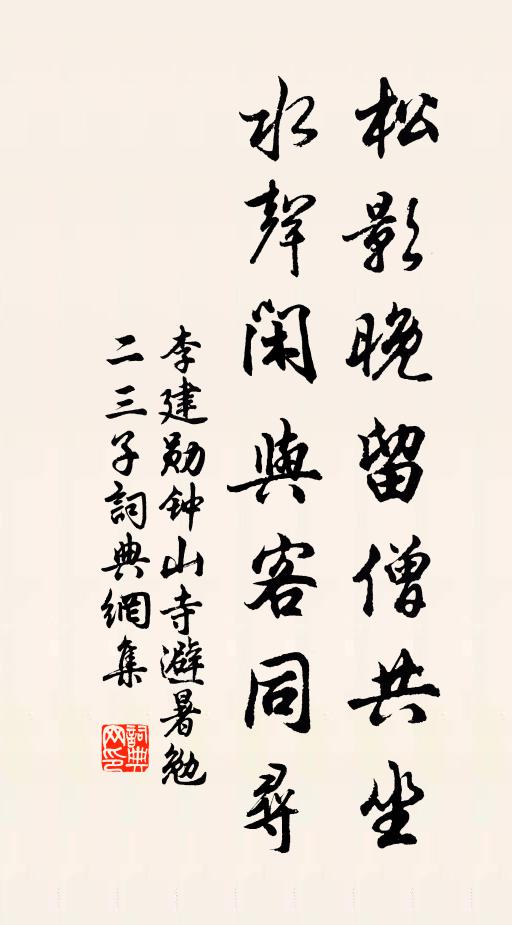 松影晚留僧共坐
水聲閑與客同尋
李建勋钟山寺避暑勉
二三子詞典網集
詞典网印